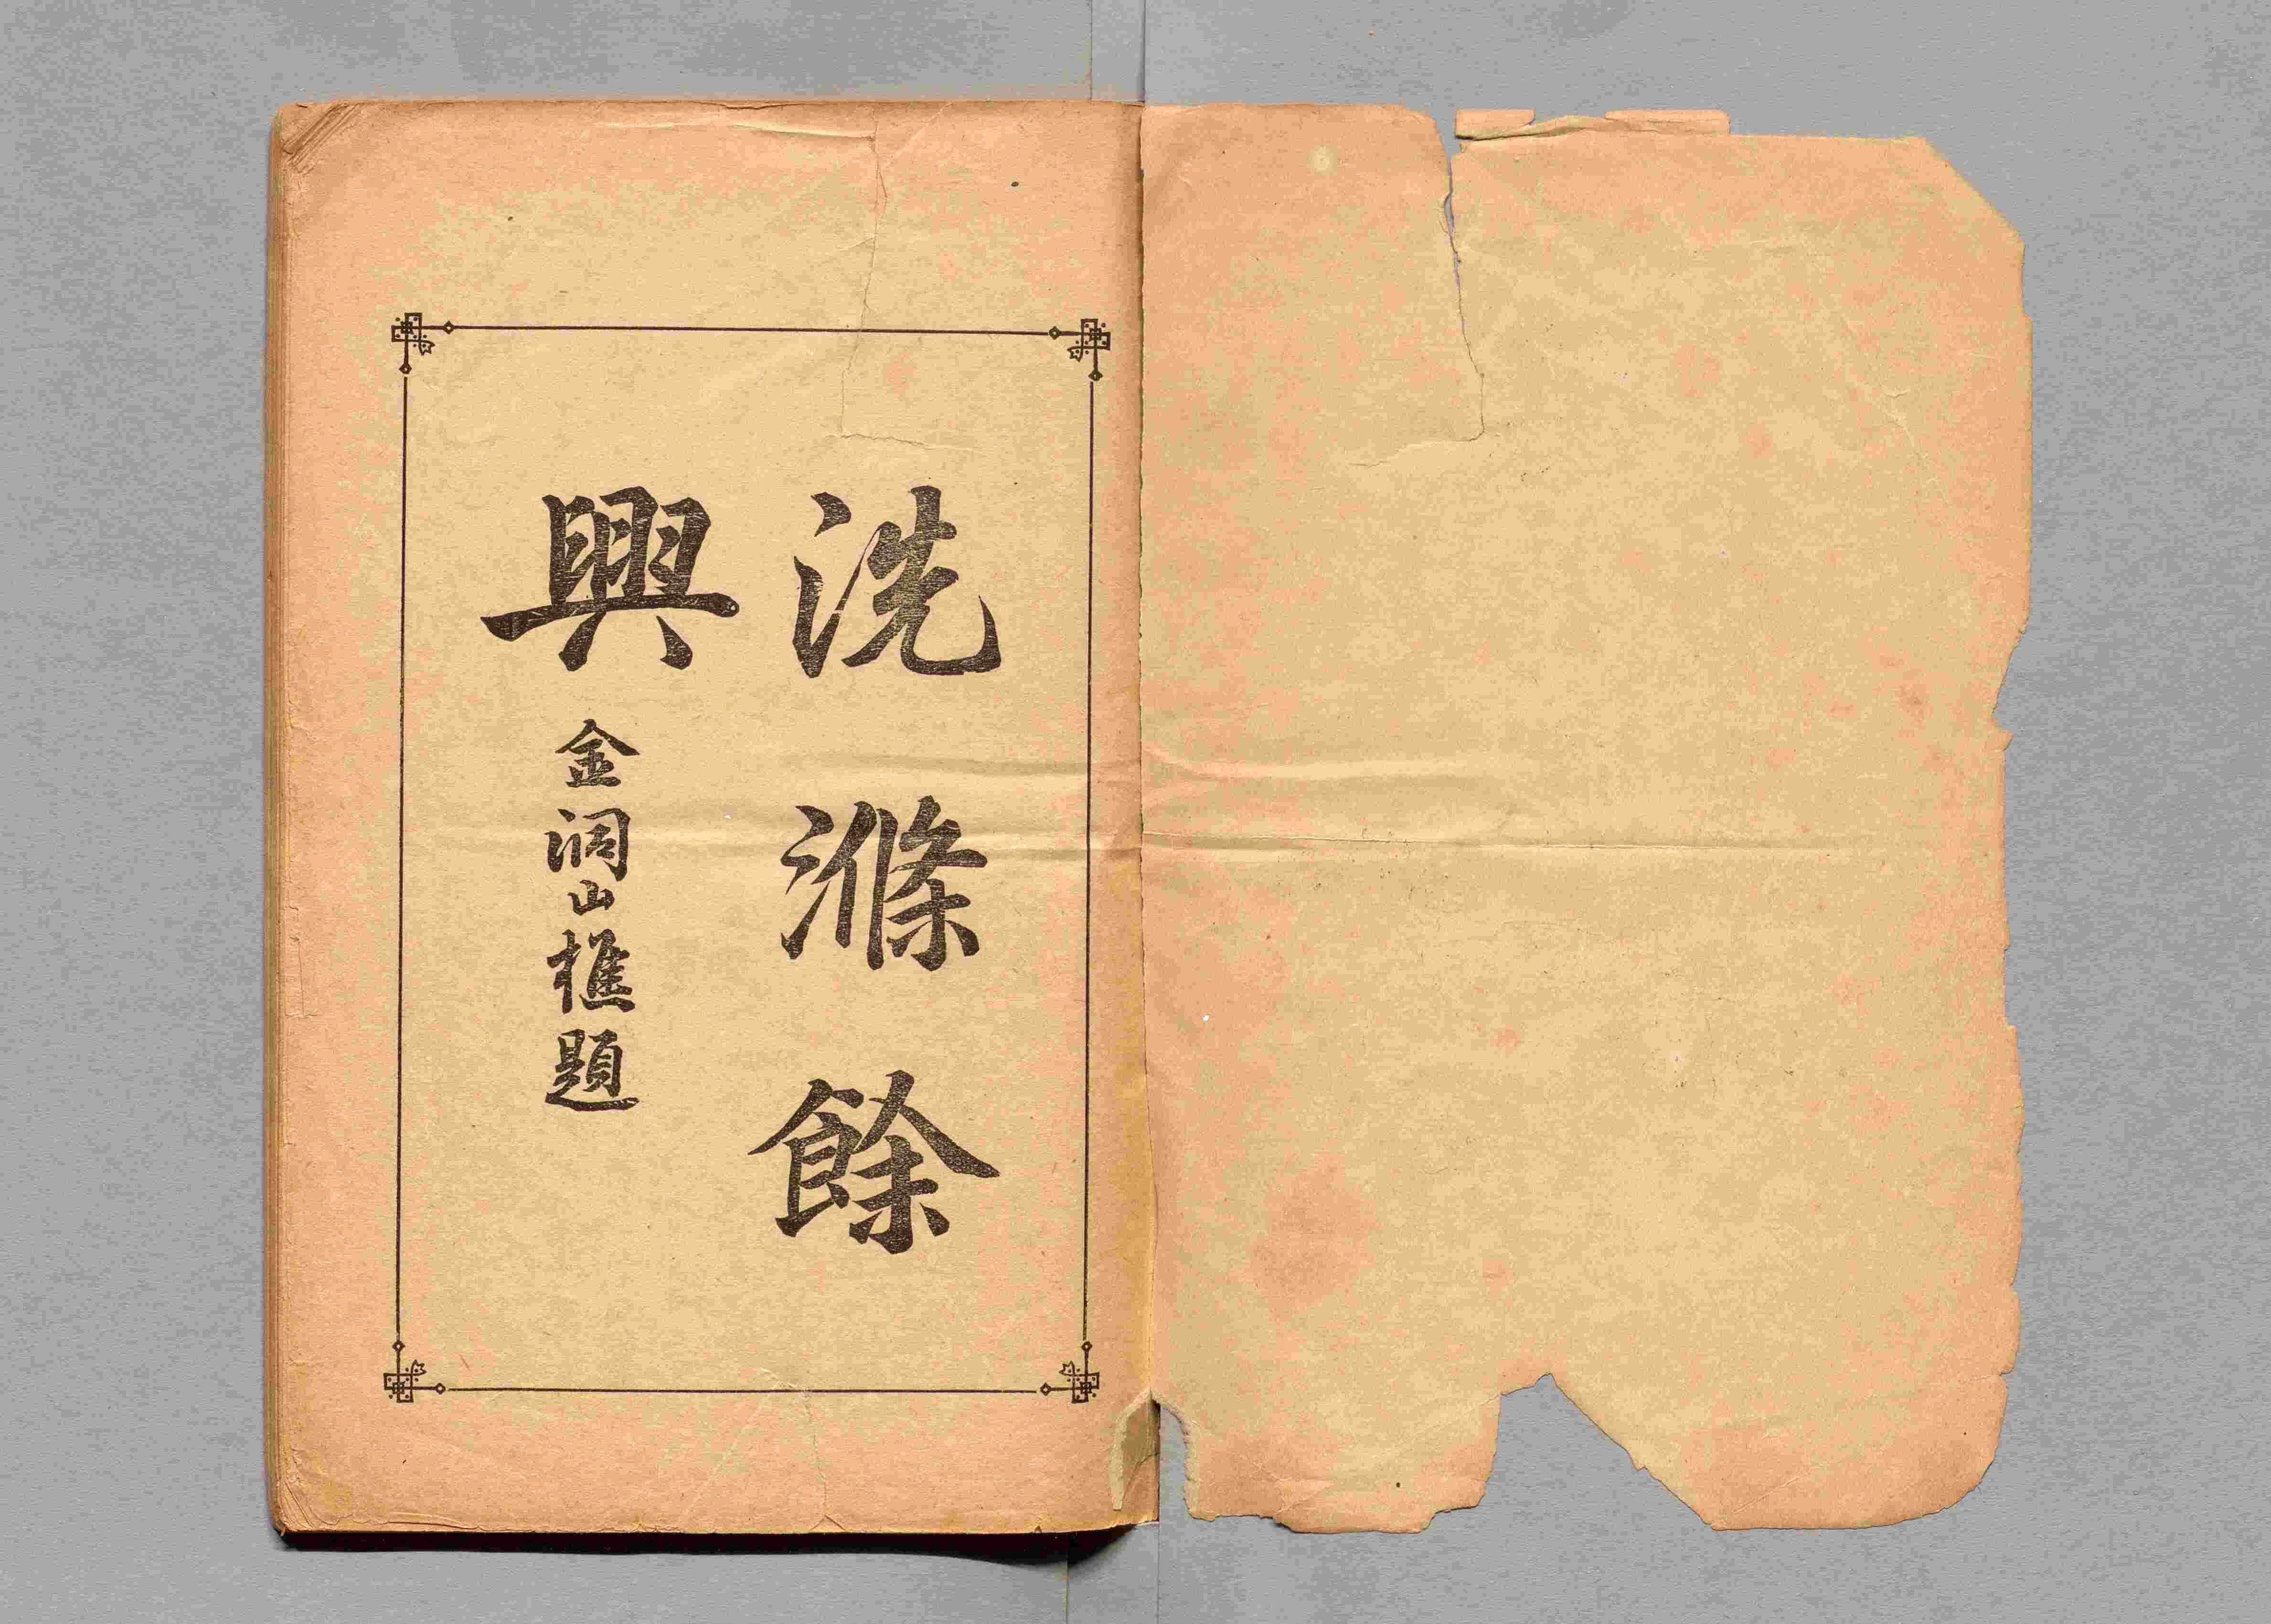 洗滌餘
興
金洞山樵題